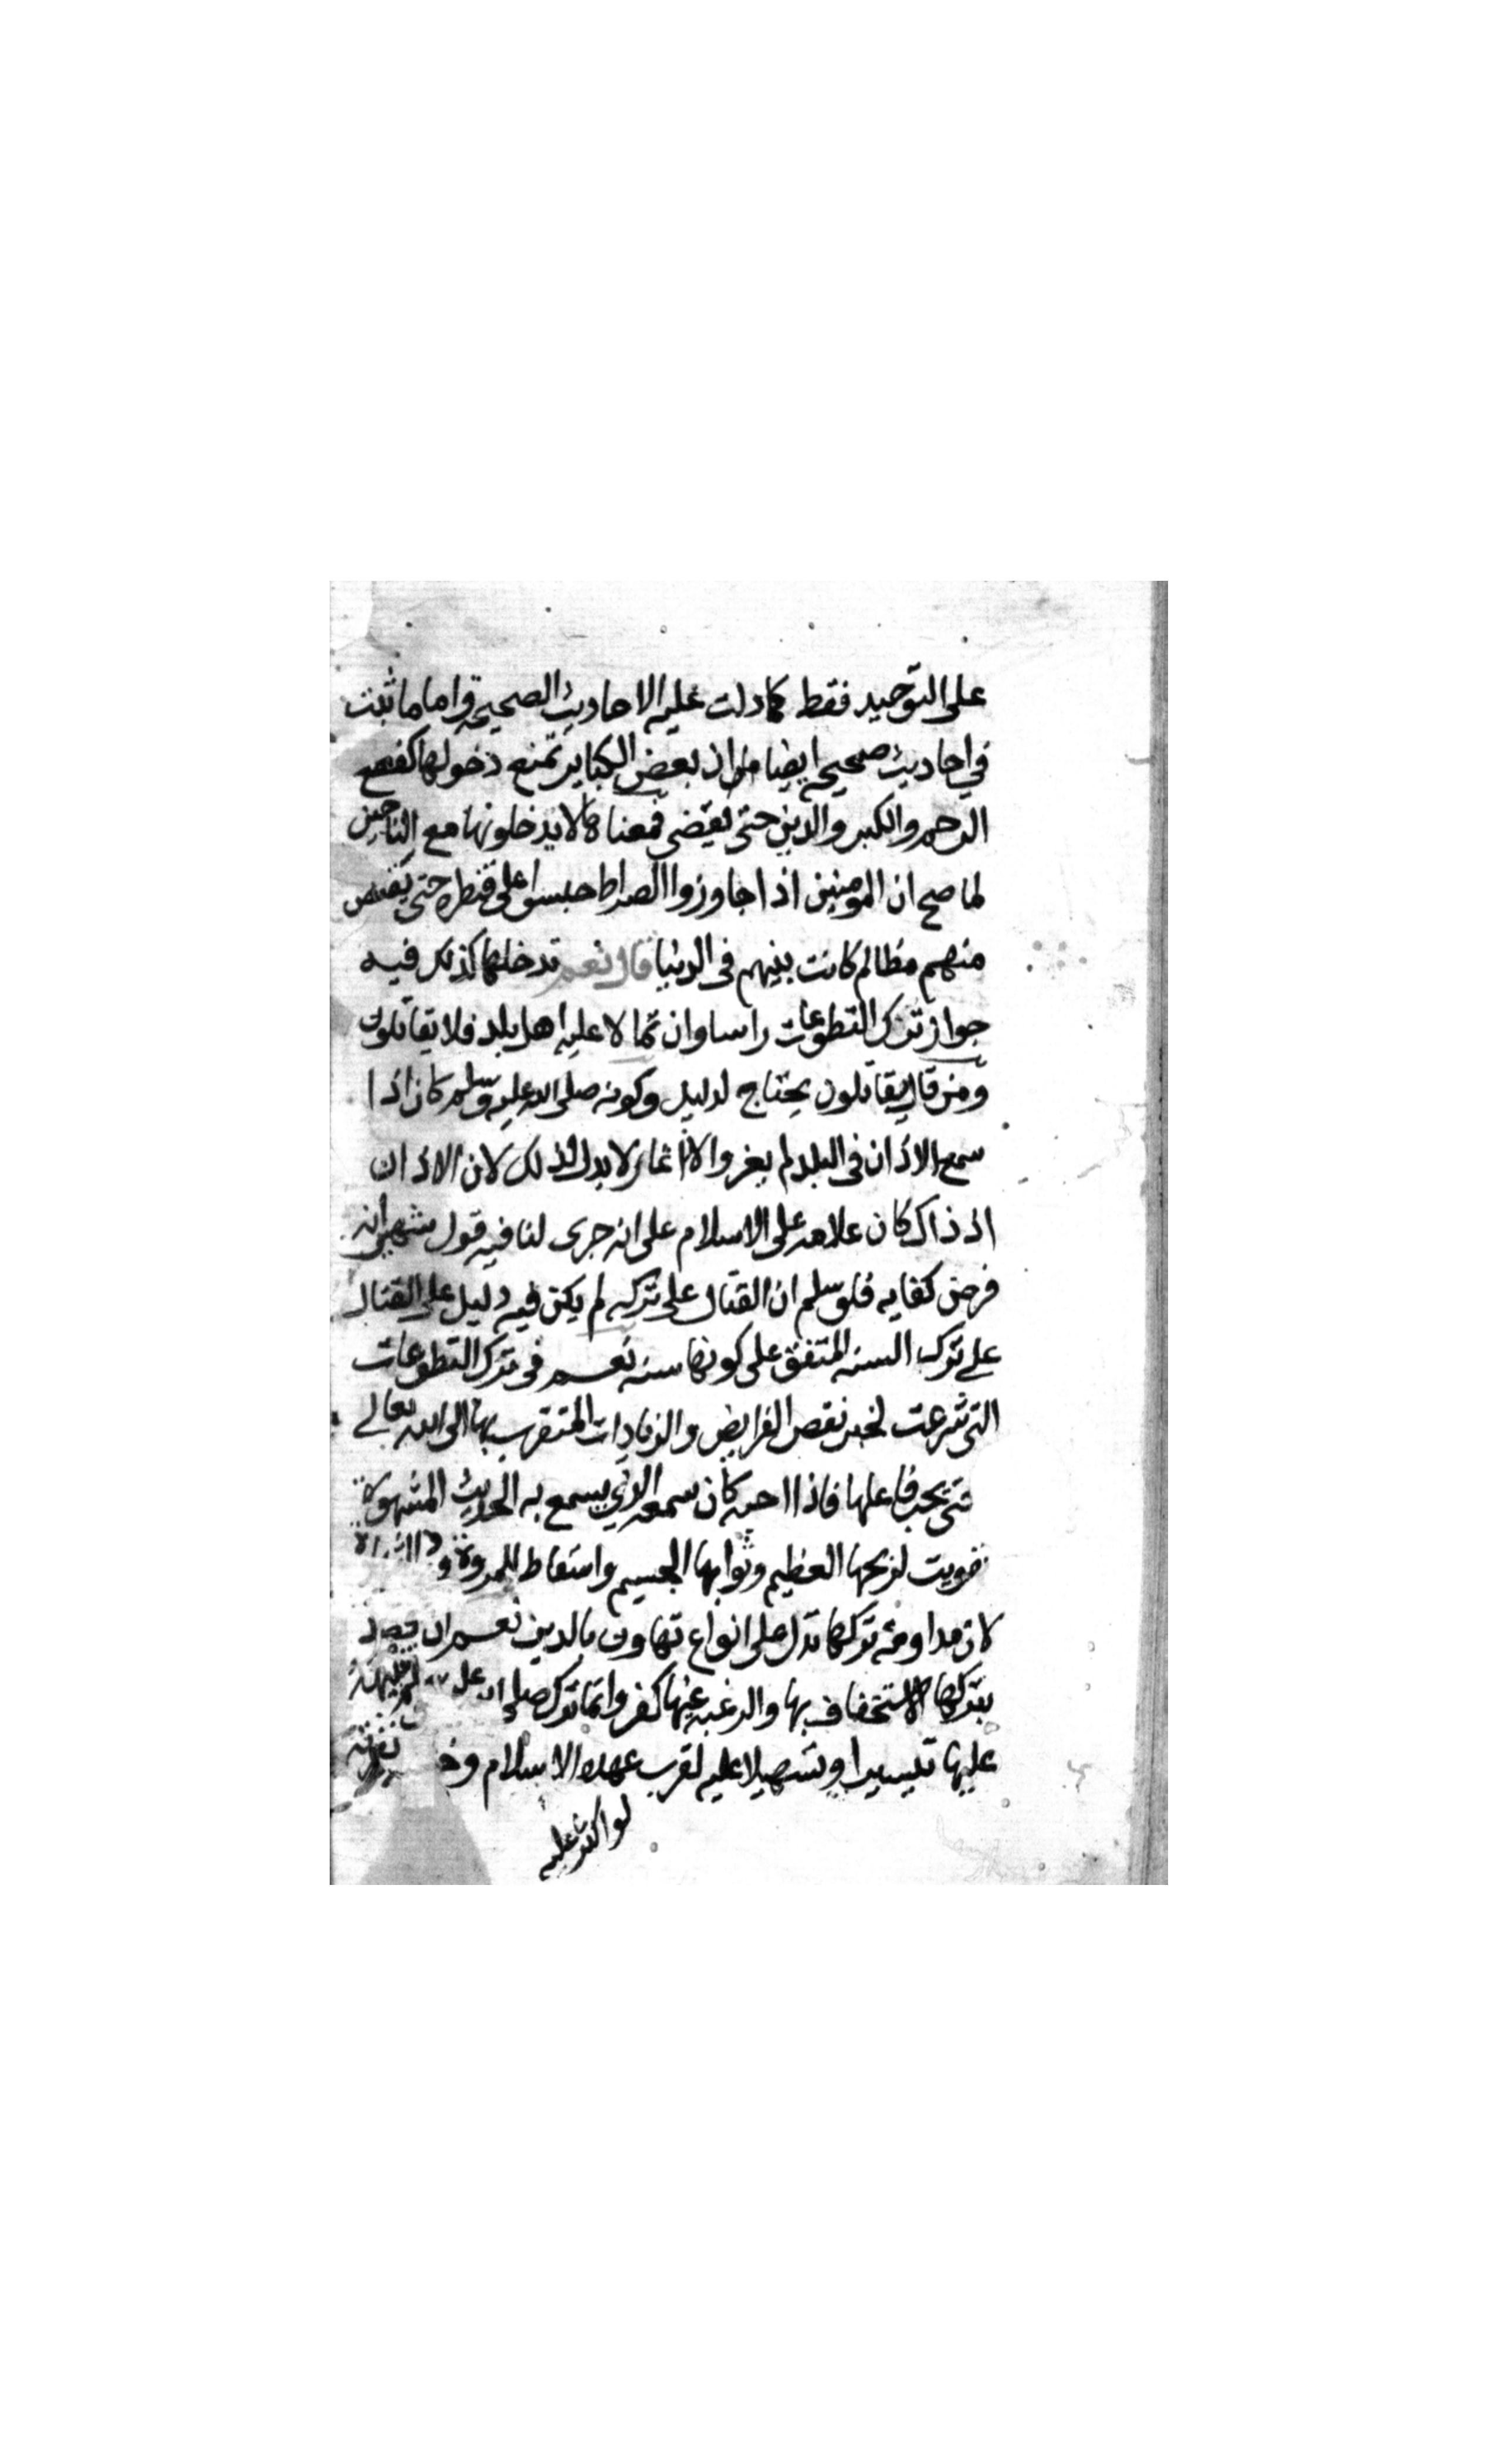 على التوحيد فقط كما دلت عليه الاحاديث الصحيحة واما ما ثبت
في احاديث صحيحه ايضا من ان بعض الكباير تمنع دخولها كقطع
الرحم والكبر والدين حتى يقضى فمعناه لا يدخلونها مع الناجين
لما صح ان المومنين اذا جاوزوا الصراط حبسوا على قنطره حتى يقتص
منهم مظالم كانت بينهم في الدنيا قال نعم تدخلها كذلك فيه
جواز ترك التطوعات راسا وان تمالا عليه اهل بلد فلا يقاتلون
ومن قال يقاتلون يحتاج لدليل وكونه صلى الله عليه وسلم كان اذا
سمع الاذان في البلد لم يغر والا اغار لا يدل لذلك لان الاذان
اذ ذاك كان علامه على الاسلام على انه جرى لنا فيه قول شهير انه
فرض كفايه فلو سلم ان القتال على تركه لم يكن فيه دليل على القتال
على ترك السنه المتفق على كونها سنه نعم في ترك التطوعات
التي شرعت لجبر نقص الفرايض والزيادات المتقرب بها الى الله تعالى
حتى يحب فاعلها فاذا احبه كان سمعه الذي يسمع به الحديث المشهور
تفويت لربحها العظيم وثوابها الجسيم واسقاط للمروة و
لان مداومة تركها تدل على انواع تهاون بالدين نعم ان قصد
بتركها الاستخفاف بها والرغبه عنها كفر وانما ترك صلى
عليها تيسيرا وتسهيلا عليه لقرب عهده الاسلام